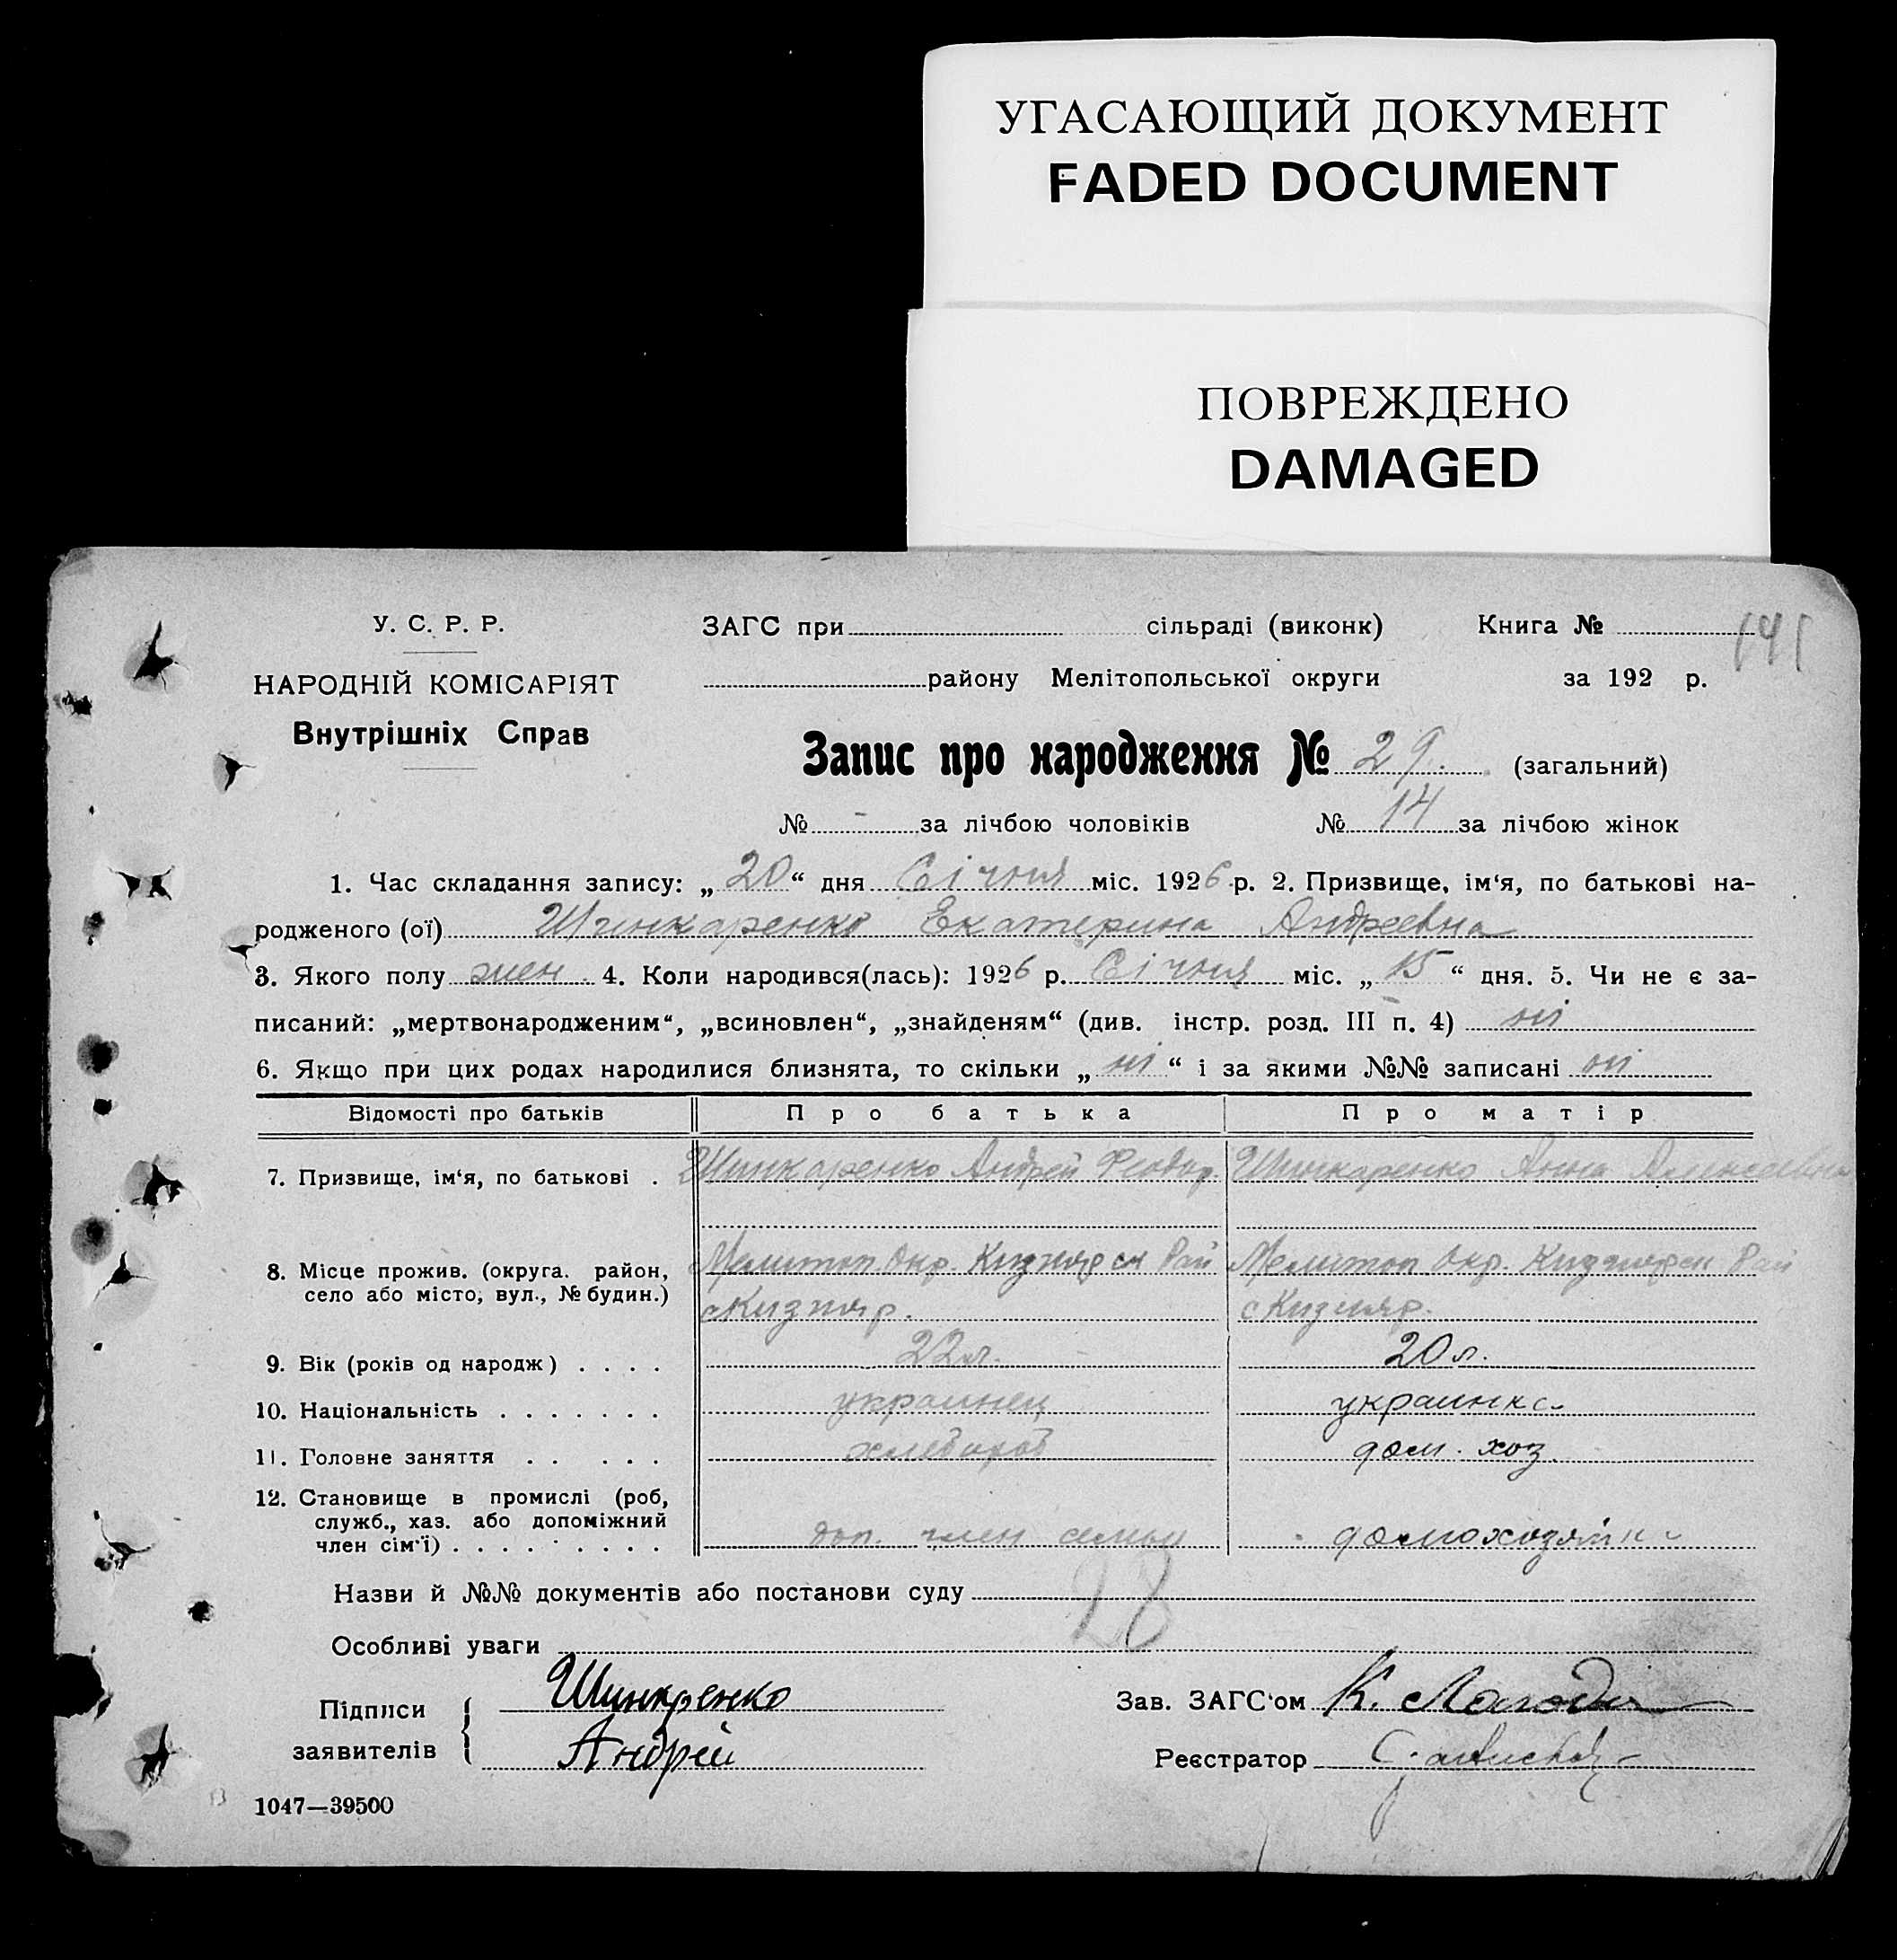 УГАСАЮЩИЙ ДОКУМЕНТ
FADED DOCUMENT
ПОВРЕЖДЕНО
DAMAGED
У. С. Р. Р.
НАРОДНІЙ КОМІСАРІЯТ
Внутрішніх Справ
ЗАГС при сільраді (виконк) Книга № 141
району Мелітопольської округи за 192 р.
Запис про народження № 29. (загальний)
№ - за лічбою чоловіків № 14 за лічбою жінок
1. Час складання запису: „20“ дня Січня міс. 1926 р. 2. Призвище, ім‘я, по батькові на-
родженого (ої) Шинкаренко Екатерина Андреевна
3. Якого полу жен. 4. Коли народився(лась): 1926 р. Січня міс. „15“ дня. 5. Чи не є за-
писаний: „мертвонародженим“, „всиновлен“, „знайденям“ (див. інстр. розд. III п. 4) ні
6. Якщо при цих родах народилися близнята, то скільки „ні“ і за якими №№ записані ні
Відомості про батьків Про батька Про матір
7. Призвище, ім‘я, по батькові . Шинкаренко Андрей Шинкаренко Анна
8. Місце прожив. (округа. район, Мелитоп. Окр. Кизиярск Рай Мелитоп. Окр. Кизиярск Рай
село або місто, вул., № будин.) с Кизияр. с Кизияр.
9. Вік (років од народж) . . . . 22 л. 20 л.
10. Національність . . . . . . . украинец украинка
11. Головне заняття . . . . . хлебороб дом. хоз.
12. Становище в промислі (роб,
служб., хаз. або допоміжний
член сім‘ї) . . . . . . . . . доп. член семьи домохозяйка
Назви й №№ документів або постанови суду
28
Особливі уваги
Підписи Шинкренко Зав. ЗАГС‘ом К.
заявителів Андрій Реєстратор
1047—39500